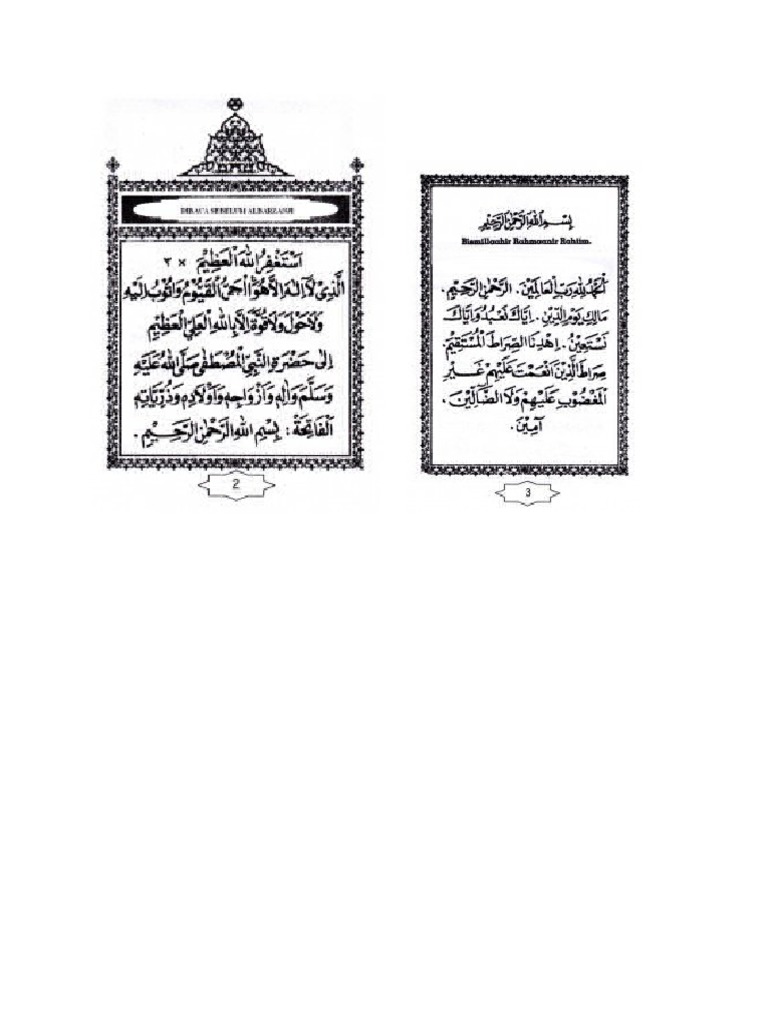 DIBACA SEBELUM ALBARZANJI
اَسْتَغْفِرُ اللهَ الْعَظِيْمَ × ٣
الَّذِيْ لَآ اِلٰهَ اِلَّا هُوَ الْحَيُّ الْقَيُّوْمُ وَاَتُوْبُ اِلَيْهِ
وَلَاحَوْلَ وَلَاقُوَّةَ اِلَّا بِاللهِ الْعَلِيِّ الْعَظِيْمِ
اِلٰى حَضْرَةِ النَّبِيِّ الْمُصْطَفٰى صَلَّى اللهُ عَلَيْهِ
وَسَلَّمَ وَاٰلِهِ وَاَزْوَاجِهِ وَاَوْلَادِهِ وَذُرِّيَّاتِهِ
اَلْفَاتِحَةُ : بِسْمِ اللهِ الرَّحْمٰنِ الرَّحِيْمِ .
2
بِسْمِ اللهِ الرَّحْمٰنِ الرَّحِيْمِ
Bismillaahir Rahmaanir Rahiim.
اَلْحَمْدُ لِلّٰهِ رَبِّ الْعَالَمِيْنَ . الرَّحْمٰنِ الرَّحِيْمِ .
مَالِكِ يَوْمِ الدِّيْنِ . اِيَّاكَ نَعْبُدُ وَاِيَّاكَ
نَسْتَعِيْنُ . اِهْدِنَا الصِّرَاطَ الْمُسْتَقِيْمَ
صِرَاطَ الَّذِيْنَ اَنْعَمْتَ عَلَيْهِمْ غَيْرِ
الْمَغْضُوْبِ عَلَيْهِمْ وَلَا الضَّالِّيْنَ .
اٰمِيْنَ .
3